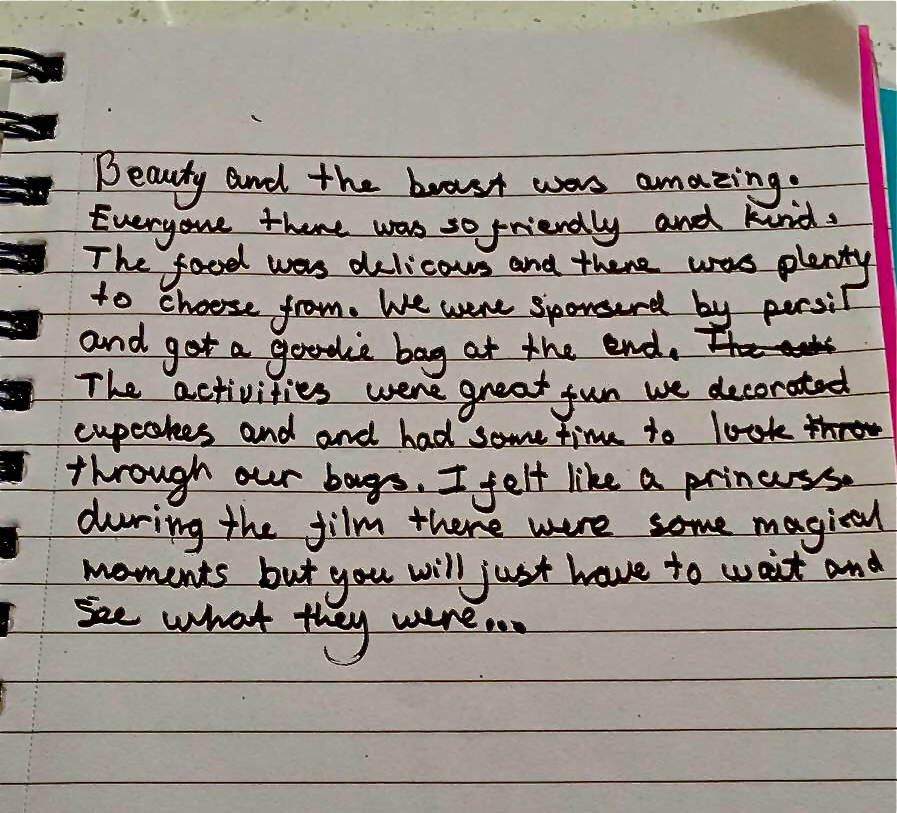 Beauty and the beast was amazing.
Everyone there was so friendly and kind.
The food was delicous and there was plenty
to choose from. We were sponserd by persil
and got a goodie bag at the end. The acti
The activities were great fun we decorated
cupcakes and and had some time to look throw
through our bags. I felt like a princess.
during the film there were some magical
moments but you will just have to wait and
see what they were...